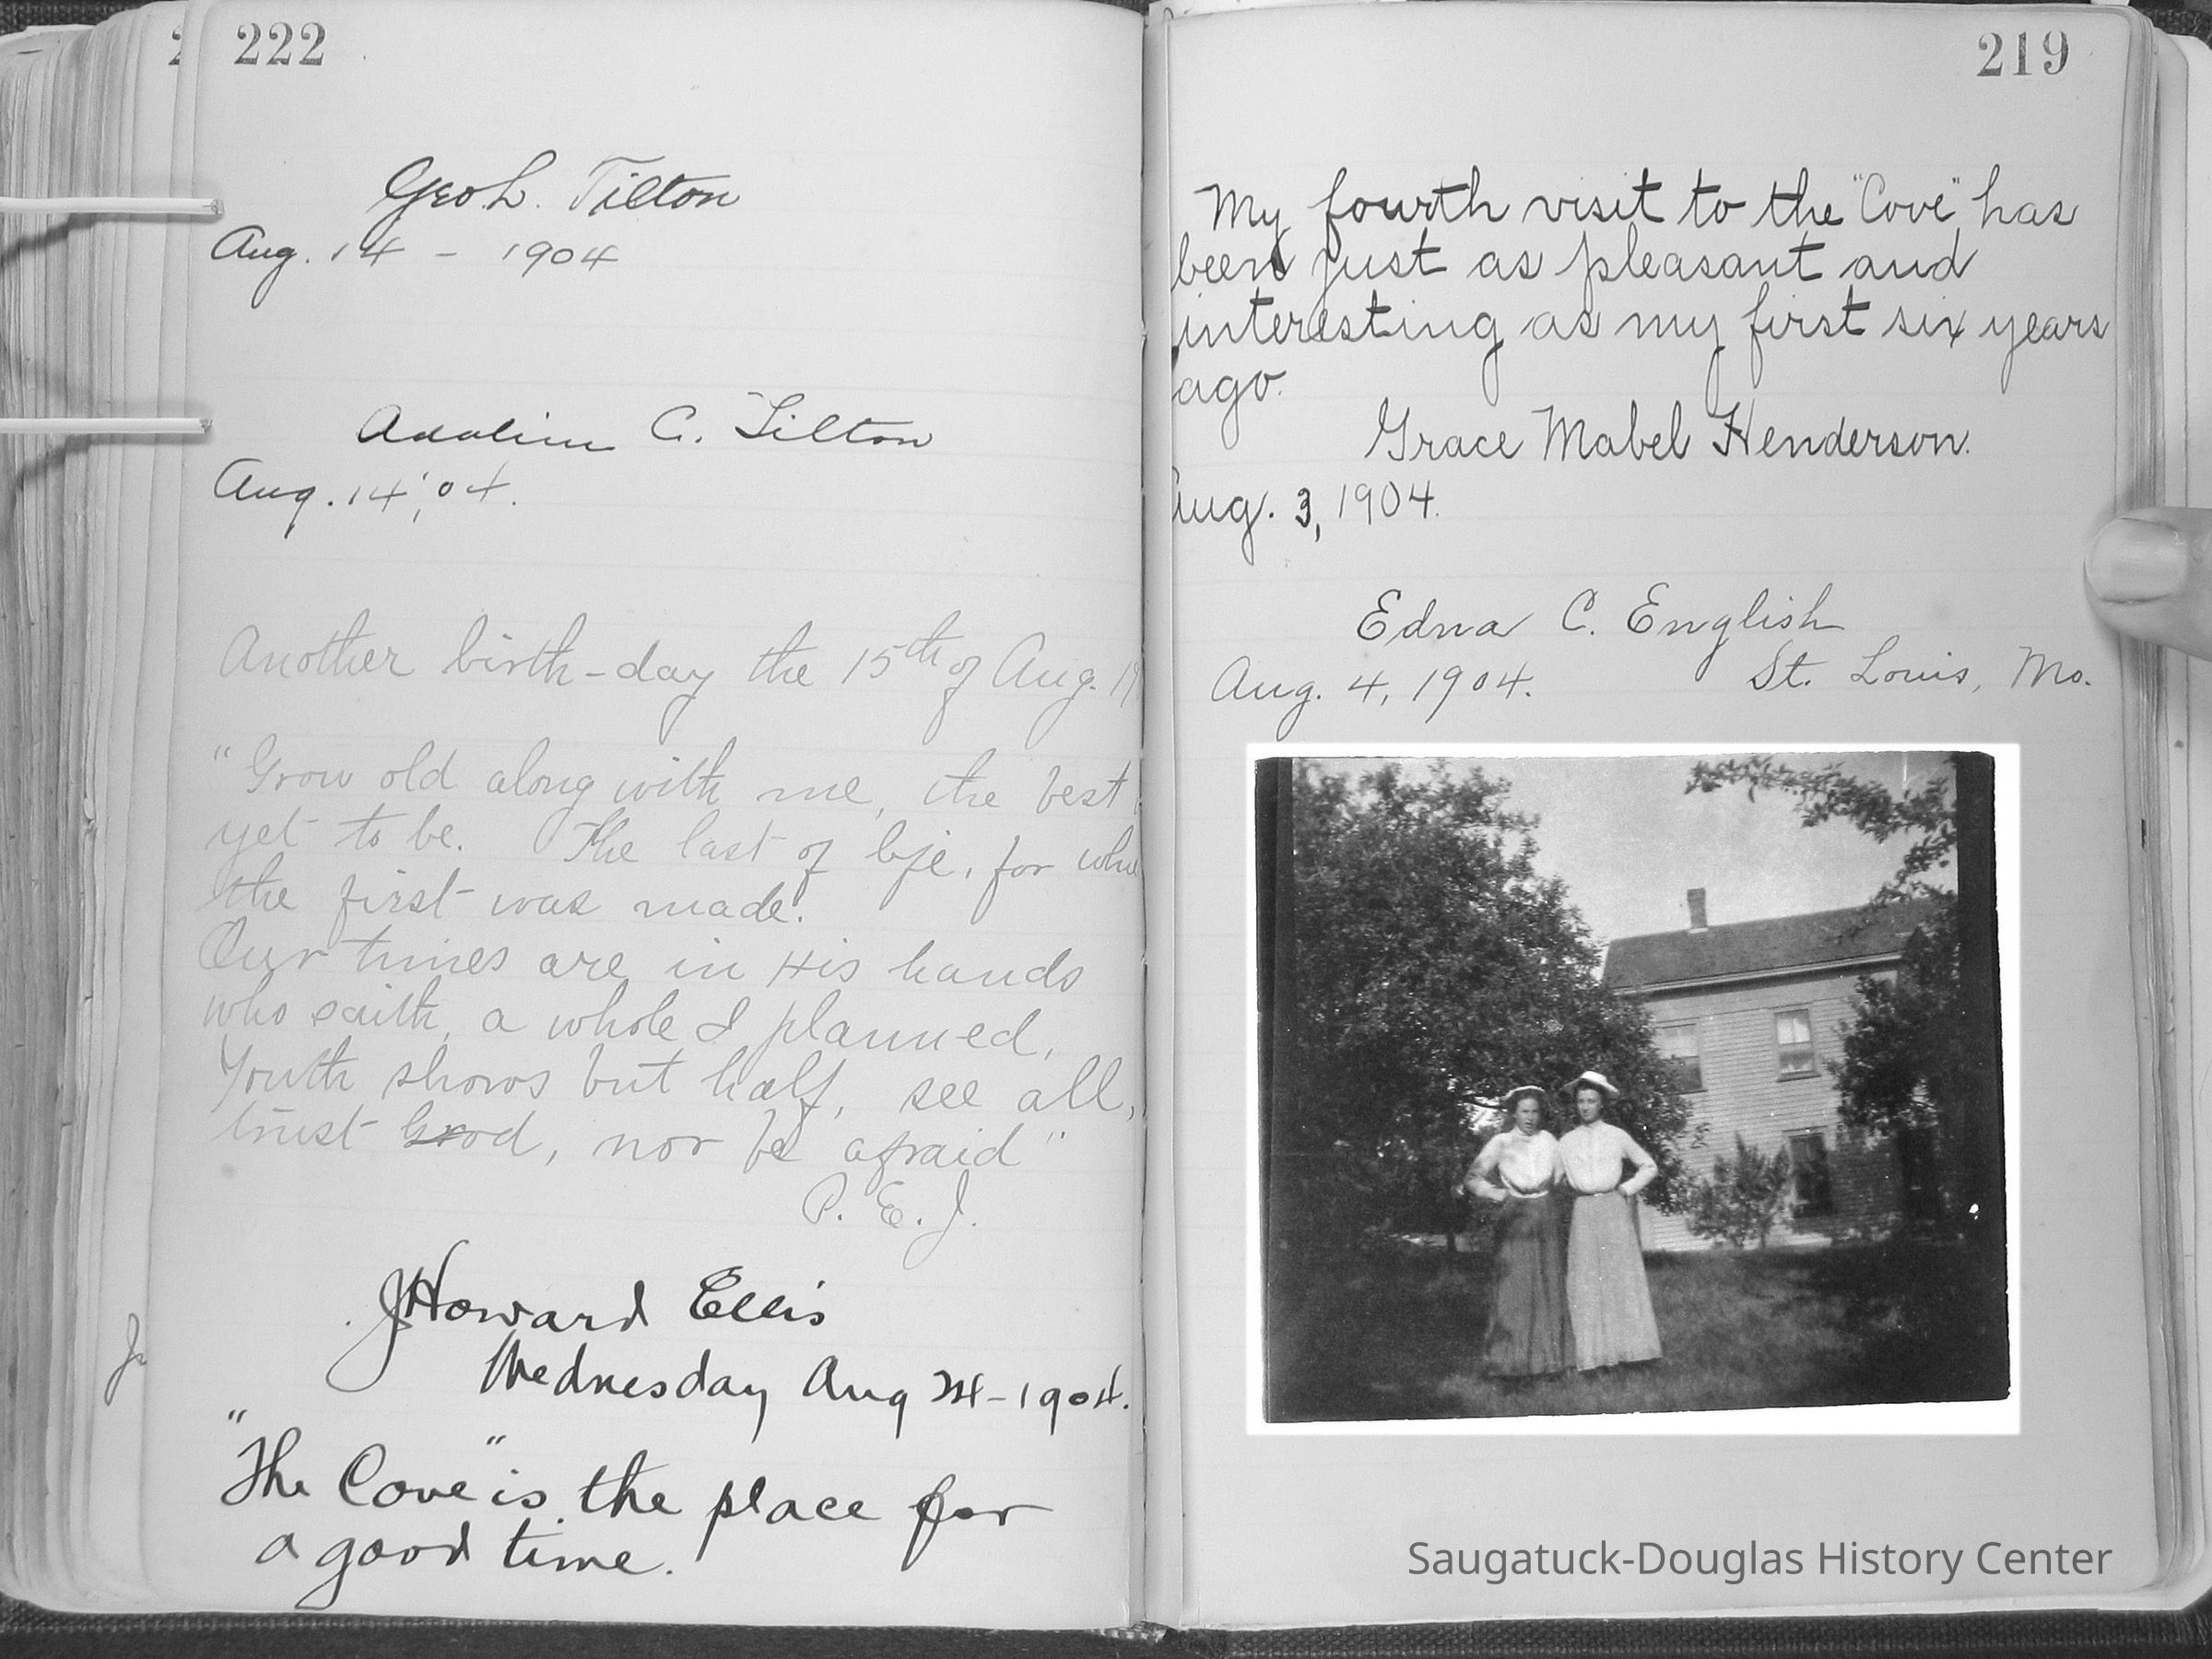 222
Geo L. Tilton
Aug. 14 - 1904
Adaline C. Tilton
Aug. 14, '04.
Another birth-day the 15th of Aug. 19
"Grow old along with me, the best
yet to be. The last of life, for
the first was made.
Our times are in His hands
who saith, a whole I planned,
Youth shows but half, see all,
trust God, nor be afraid"
P. E. J.
J Howard Ellis
Wednesday Aug 24-1904.
"The Cove" is the place for
a good time.
219
My fourth visit to the "Cove" has
been just as pleasant and
interesting as my first six years
ago.
Grace Mabel Henderson.
Aug. 3, 1904.
Edna C. English
Aug. 4, 1904. St. Louis, Mo.
Saugatuck-Douglas History Center